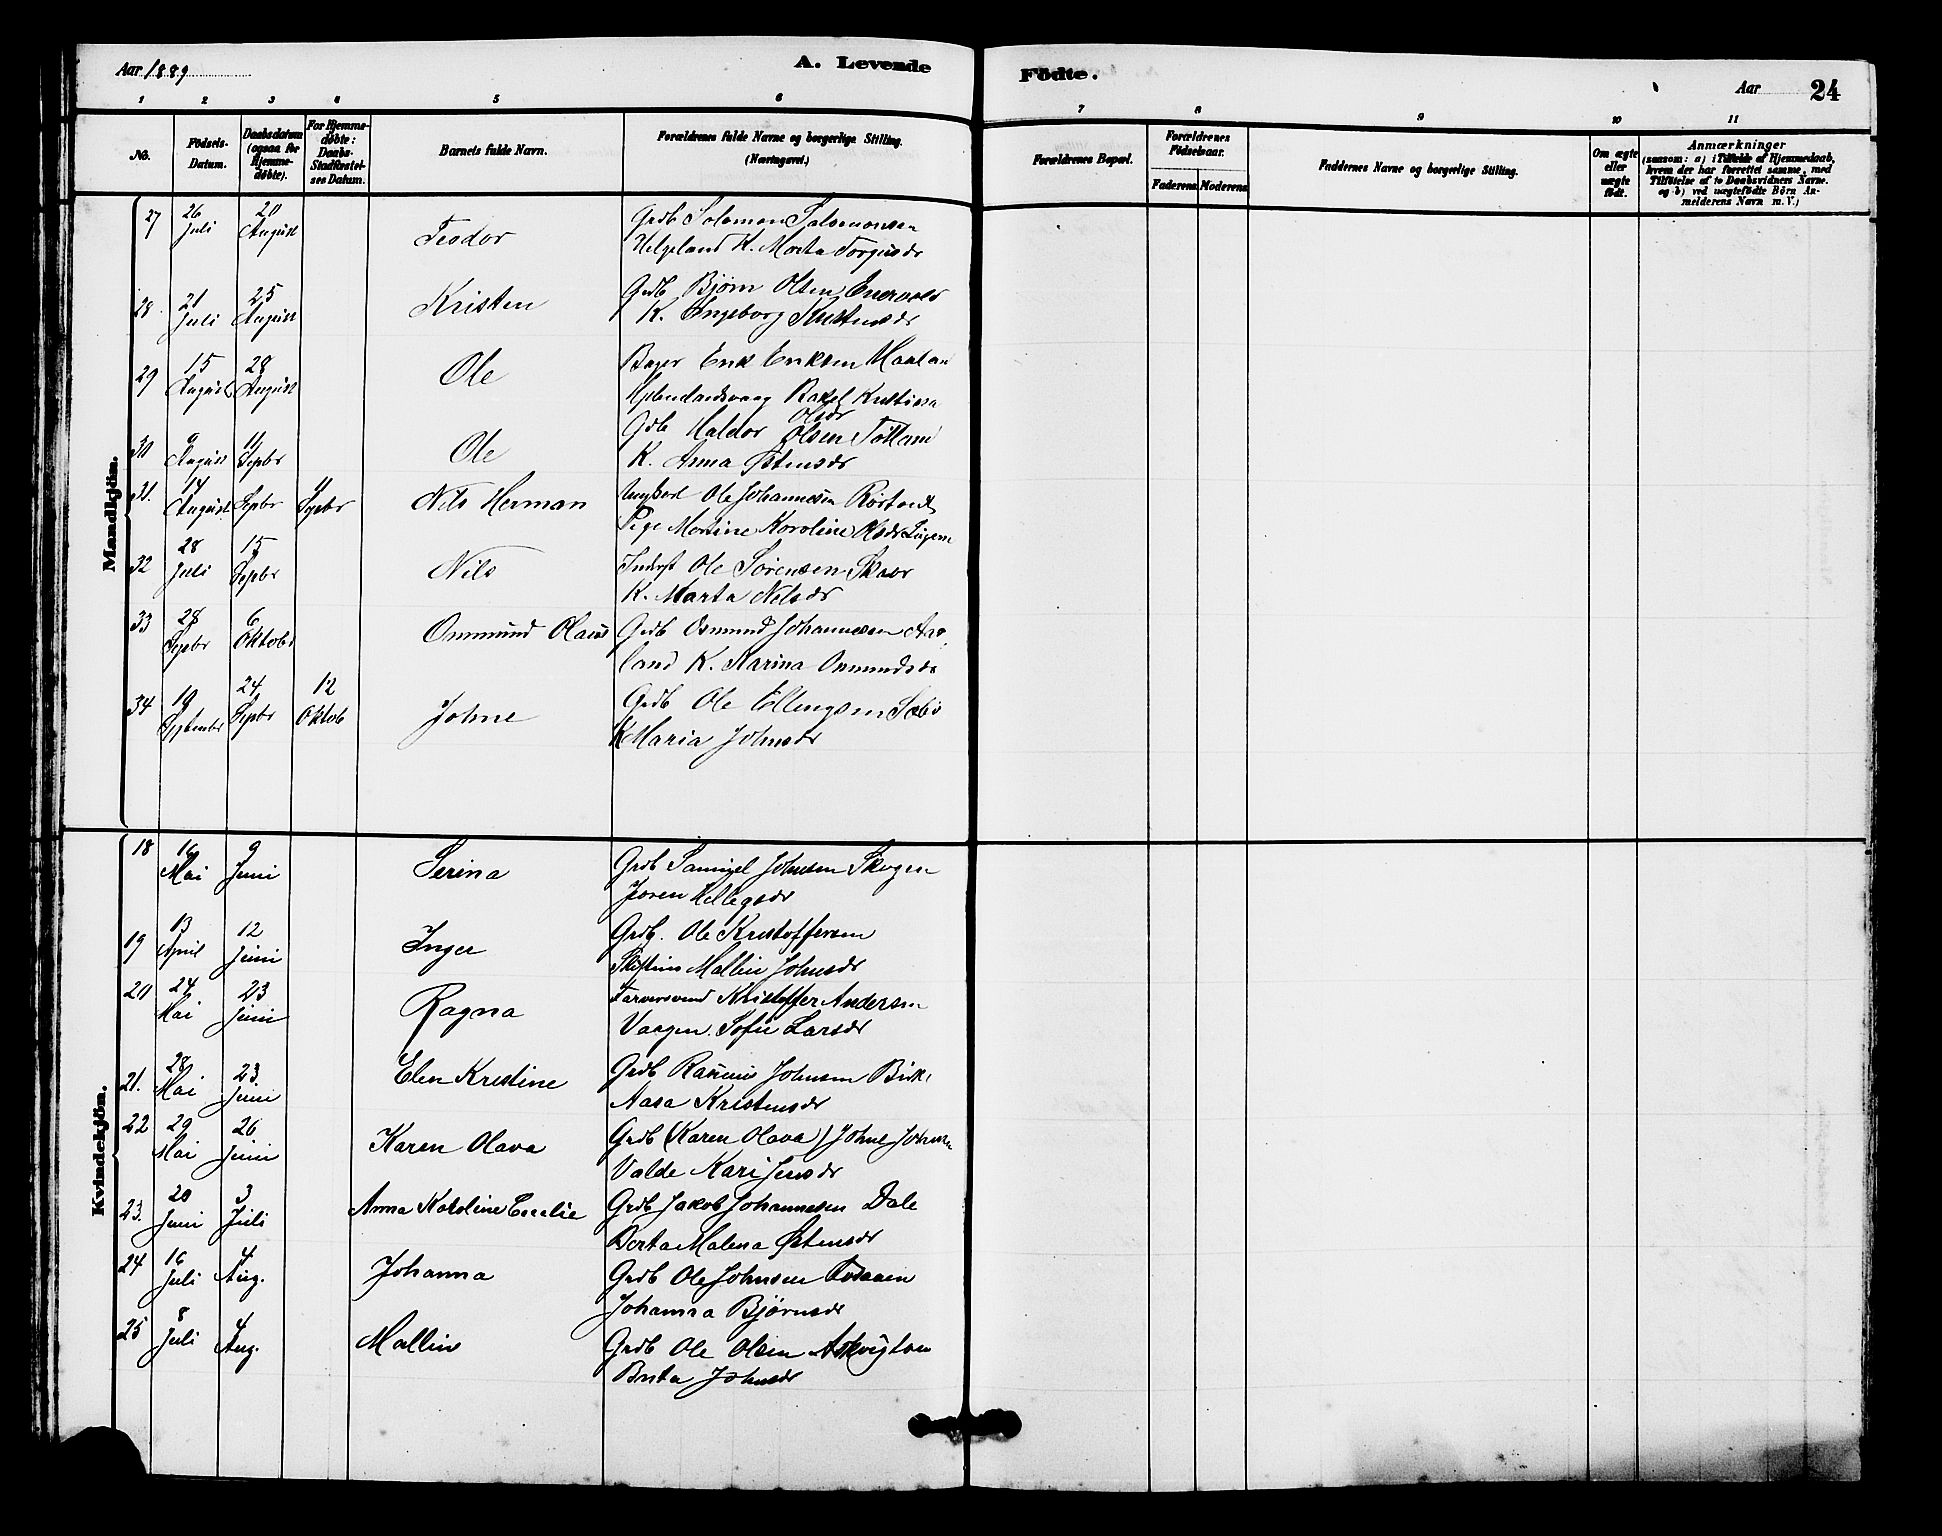 Aar 1889 A. Levende Födte. Aar 24
1 2 3 4 5 6 7 8 9 10 11
No.
Födsels-Datum.
Daabsdatum (ogsaa for Hjemme-döbte).
For Hjemme-döbte: Daabs-Stadfæstel-ses Datum.
Barnets fulde Navn.
Forældrenes fulde Navne og borgerlige Stilling. (Næringsvei.)
Forældrenes Bopæl.
Forældrenes Födselsaar.
Faderens Moderens
Faddernes Navne og borgerlige Stilling.
Om ægte eller uægte födt.
Anmærkninger
(saasom: a) i Tilfælde af Hjemmedaab, hvem der har forrettet samme, med Tilföielse af to Daabsvidners Navne. og b) ved uægtefödte Börn Anmelderens Navn m. V.)
Mandkjön.
27 26 Juli 20 August Teodor Grdb Solomon Salomonsen
Helgeland K. Marta Torgusdr
28 21 Juli 25 August Kristen Grdb Bjørn Olsen
K. Ingeborg
29 15 August 28 August Ole Bager Erik Eriksen
Rakel Kristina
Olsdr
30 9 August 11 Sepbr Ole Gdb Haldor Olsen
K. Anna Østensdr
31. 14 August Sepbr 11 Sepbr Nils Herman Ungkarl Ole Johannesen
Pige Martine Karoline Olsdr
32 28 Juli 15 Sepbr Nils Inderst Ole Sørensen
K. Marta Nilsdr
33 28 Sepbr 6 Oktobr Ommund Olaus Grdb Osmund Johannesen Aas
land K. Karina Ommundsdr
34 19 September 24 Sepbr 12 Oktob Johne Grdb Ole Ellengsen Sæbø
K Maria Johnsdr
Kvindekjön.
18 16 Mai 9 Juni Serina Grdb Samuel Johnsen Skogen
Joren Hellegsdr
19 13 April 12 Juni Inger Grdb. Ole Kristoffersen
Mallin Johnsdr
20 24 Mai 23 Juni Ragna Farversvend Kristoffer Andersen
Vaagen. Sofie Larsdr
21. 28 Mai 23. Juni Elen Kristine Grdb Rasmus Johnsen
Aasa Kristensdr
22 29 Mai 26 Juni Karen Olava Grdb (Karen Olava) Johne Johnsen
Valde Kari Jensdr
23. 20 Juni 3 Juli Anna Karoline Grdb Jakob Johannesen Dale
Berta Malena Østensdr
24 16 Juli 4 Aug. Johanna Grdb Ole Johnsen
Johanna Bjørnsdr
25 8 Juli 4 Aug. Mallin Grdb Ole Olsen
Brita Johnsdr